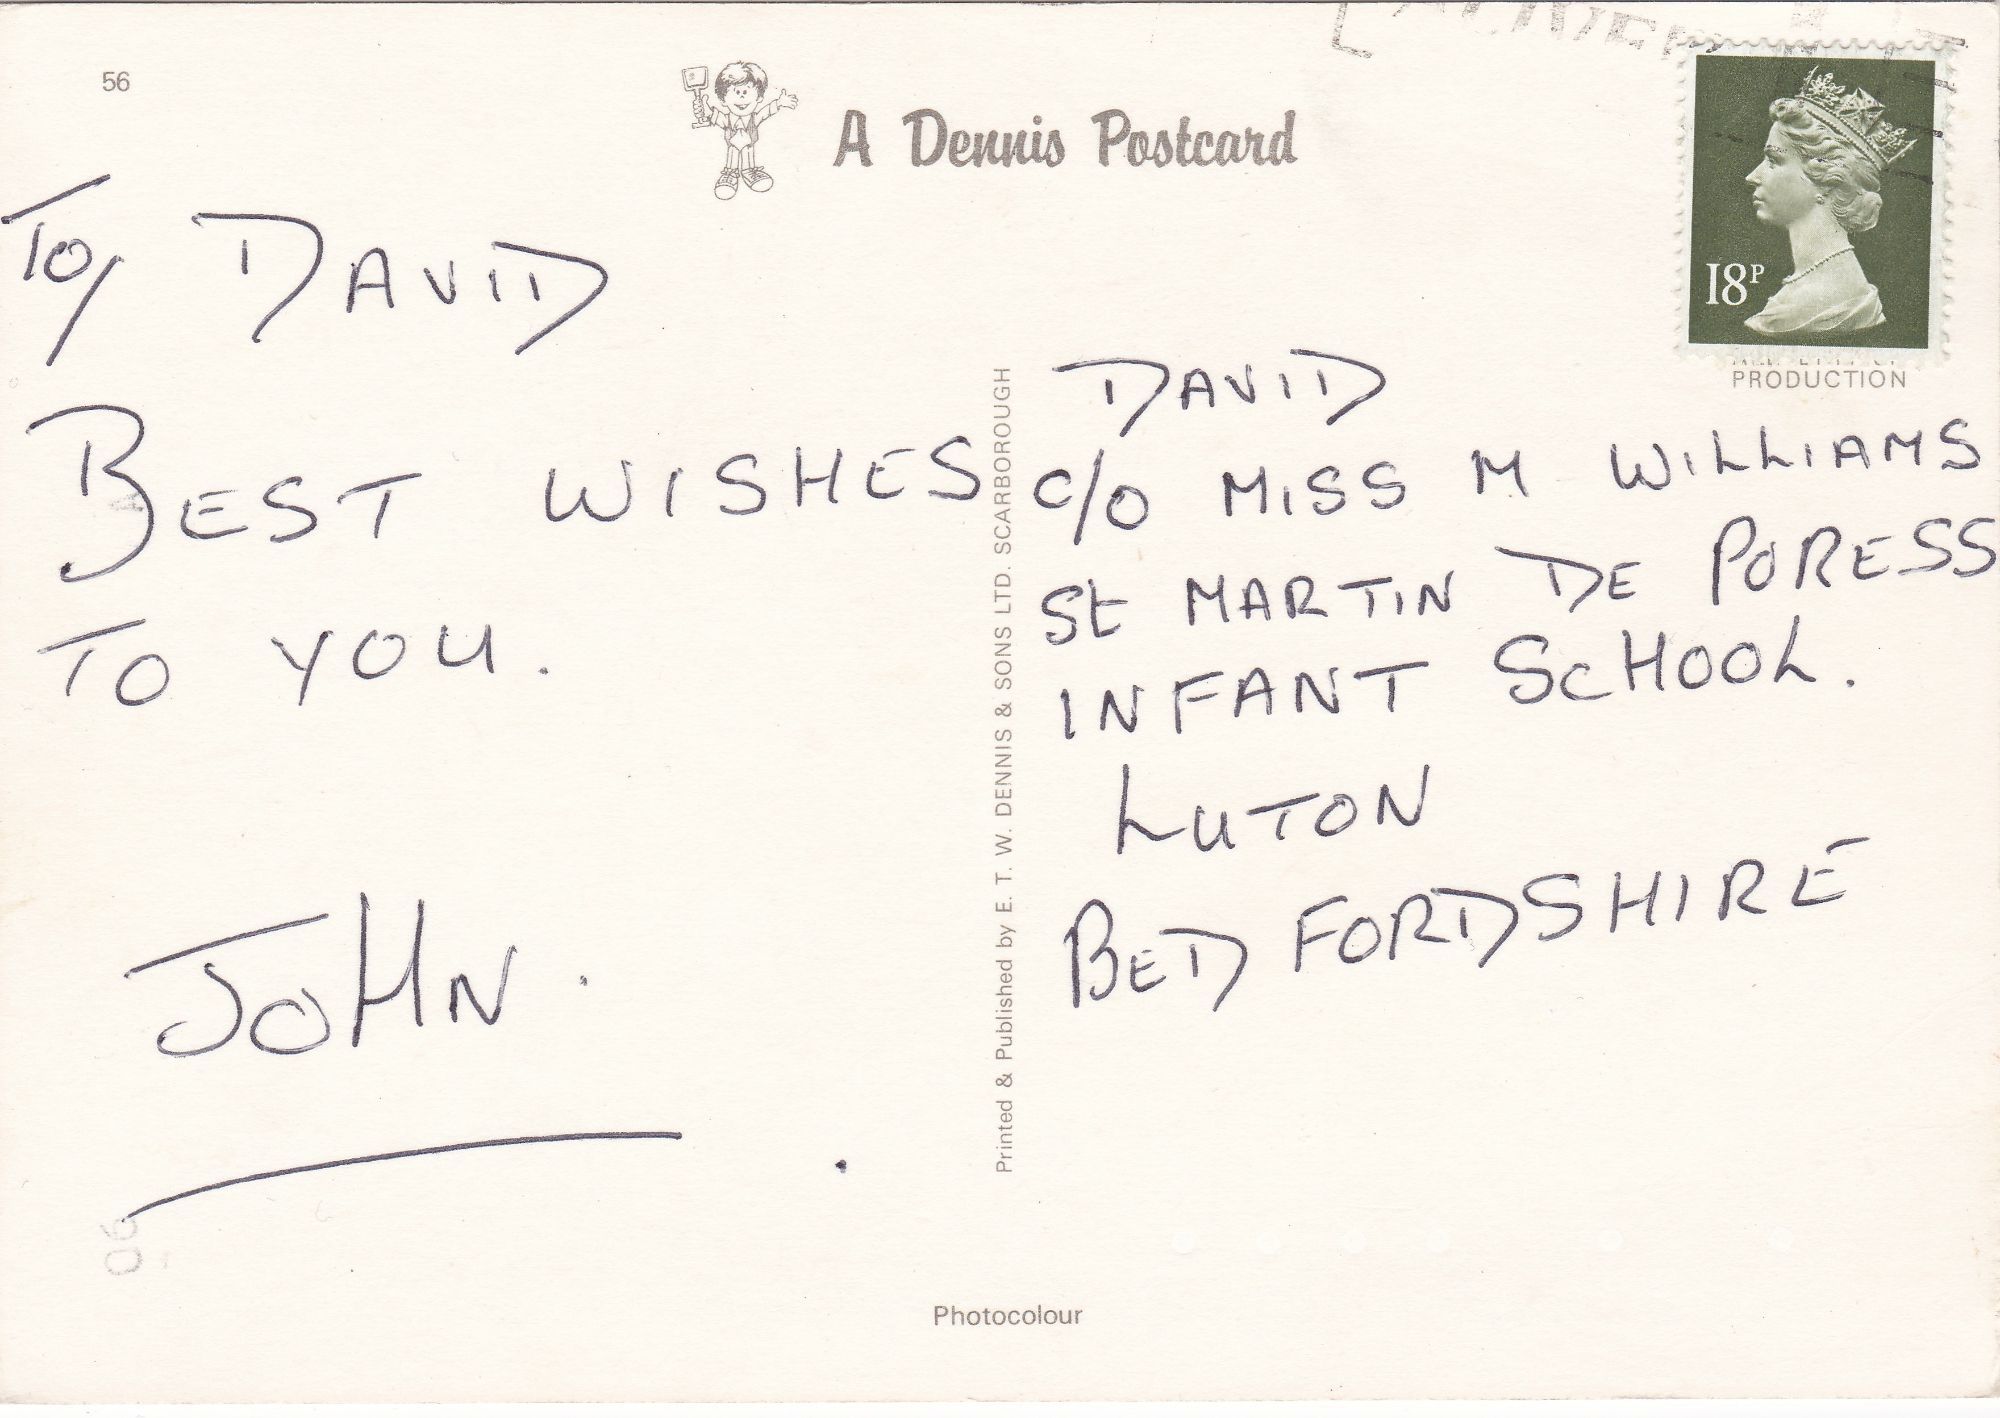 56
A Dennis Postcard
18P
PRODUCTION
TO, DAVID
BEST WISHES
TO YOU.
JOHN.
Printed & Published by E. T. W. DENNIS & SONS LTD. SCARBOROUGH
DAVID
C/O MISS M WILLIAMS
St MARTIN DE PORESS
INFANT SCHOOL.
LUTON
BEDFORDSHIRE
Photocolour